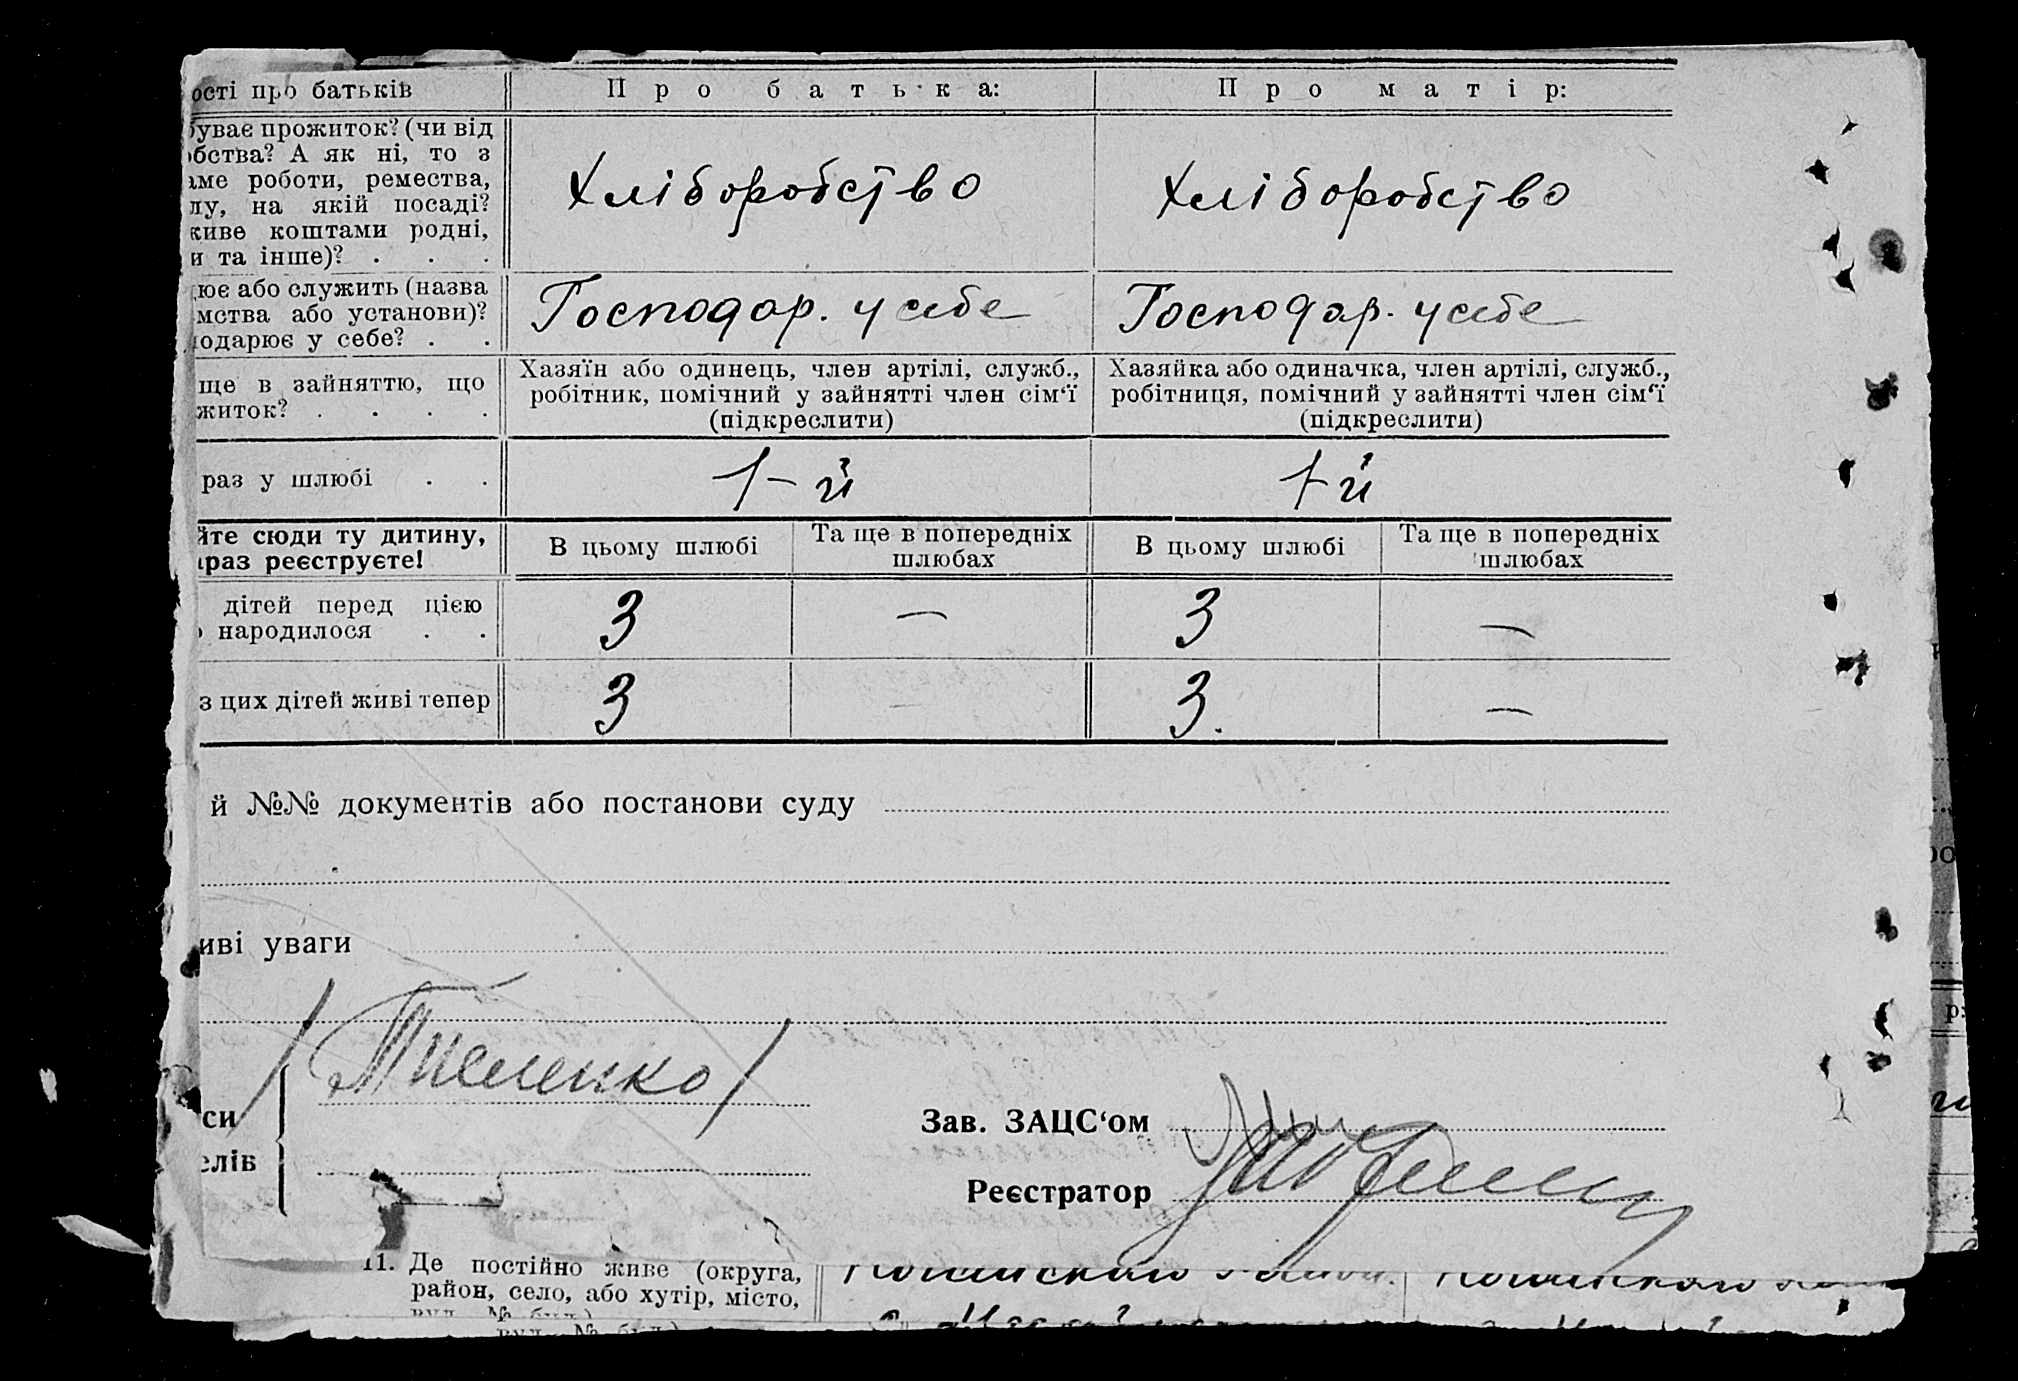 ості про батьків
Про батька:
Про матір:
буває прожиток? (чи від
бства? А як ні, то з
аме роботи, ремества,
лу, на якій посаді?
живе коштами родні,
и та інше)? . . .
Хліборобство
Хліборобство
ює або служить (назва
мства або установи)?
подарює у себе? . .
Господар. у себе
Господар. у себе
ще в зайняттю, що
житок? . . . .
Хазяїн або одинець, член артілі, служб.,
робітник, помічний у зайнятті член сім‘ї
(підкреслити)
Хазяйка або одиначка, член артілі, служб.,
робітниця, помічний у зайнятті член сім‘ї
(підкреслити)
раз у шлюбі . .
1-й
1-й
йте сюди ту дитину,
араз реєструєте!
В цьому шлюбі
Та ще в попередніх
шлюбах
В цьому шлюбі
Та ще в попередніх
шлюбах
дітей перед цією
о народилося . .
3
—
3
—
з цих дітей живі тепер
3
—
3.
—
й №№ документів або постанови суду
иві уваги
си
елів
Зав. ЗАЦС‘ом
Реєстратор
11. Де постійно живе (округа,
район, село, або хутір, місто,
вул. № буд.)